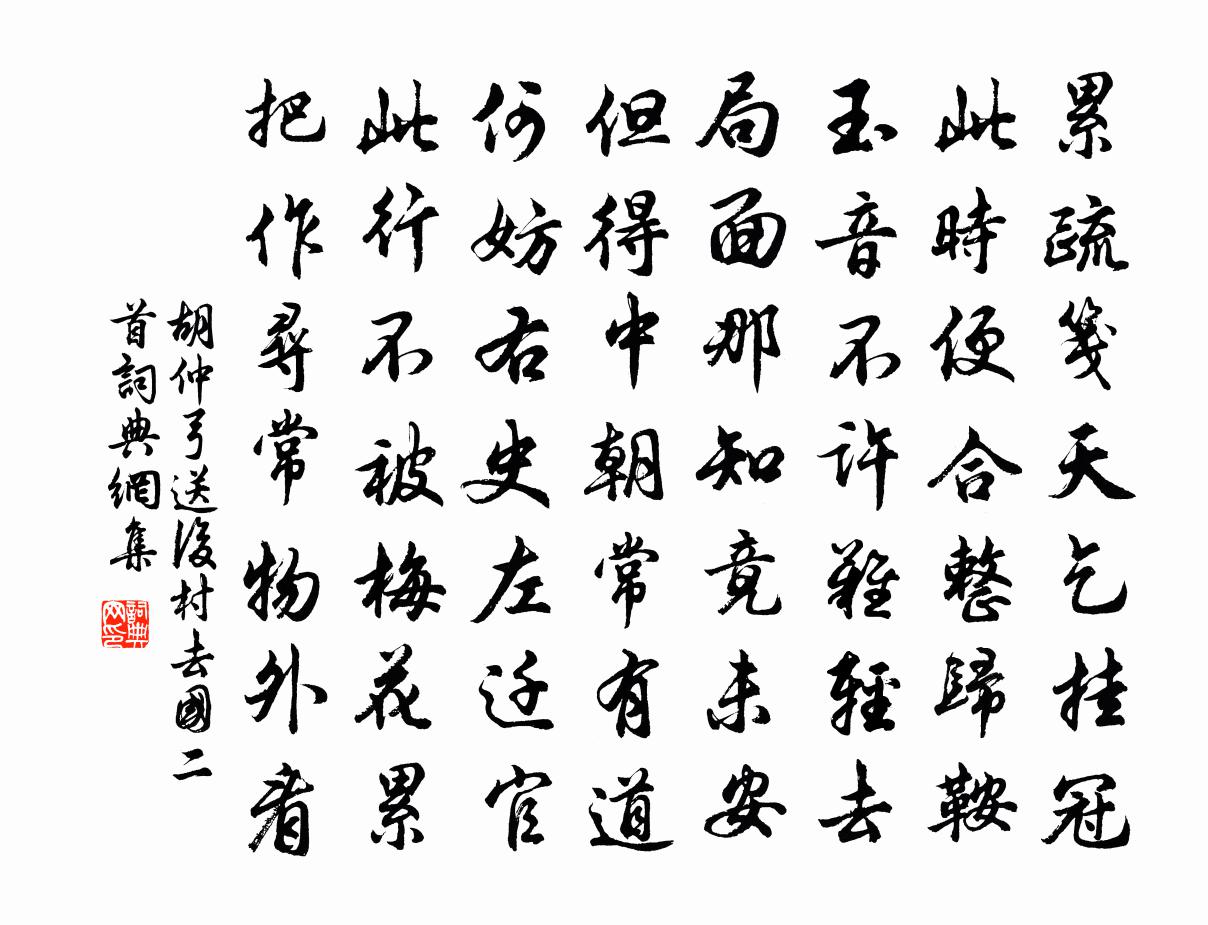 累疏箋天乞挂冠
此時便合整歸鞍
玉音不許難輕去
局面那知竟未安
但得中朝常有道
何妨右史左迁官
此行不被梅花累
把作尋常物外看
胡仲弓送後村去國二
首詞典網集
詞典
网印